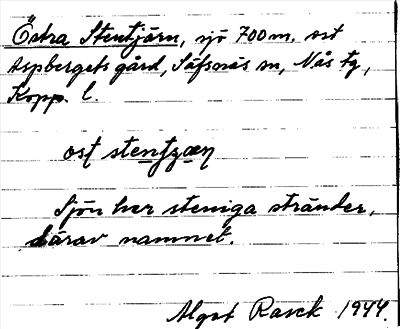 Östra Stentjärn, sjö 700 m. ost
Aspbergets gård, Säfsnäs sn, Nås tg,
Kopp. l.
ost stentzæn
Sjön har steniga stränder,
därav namnet.
Algot Rasck 1944.